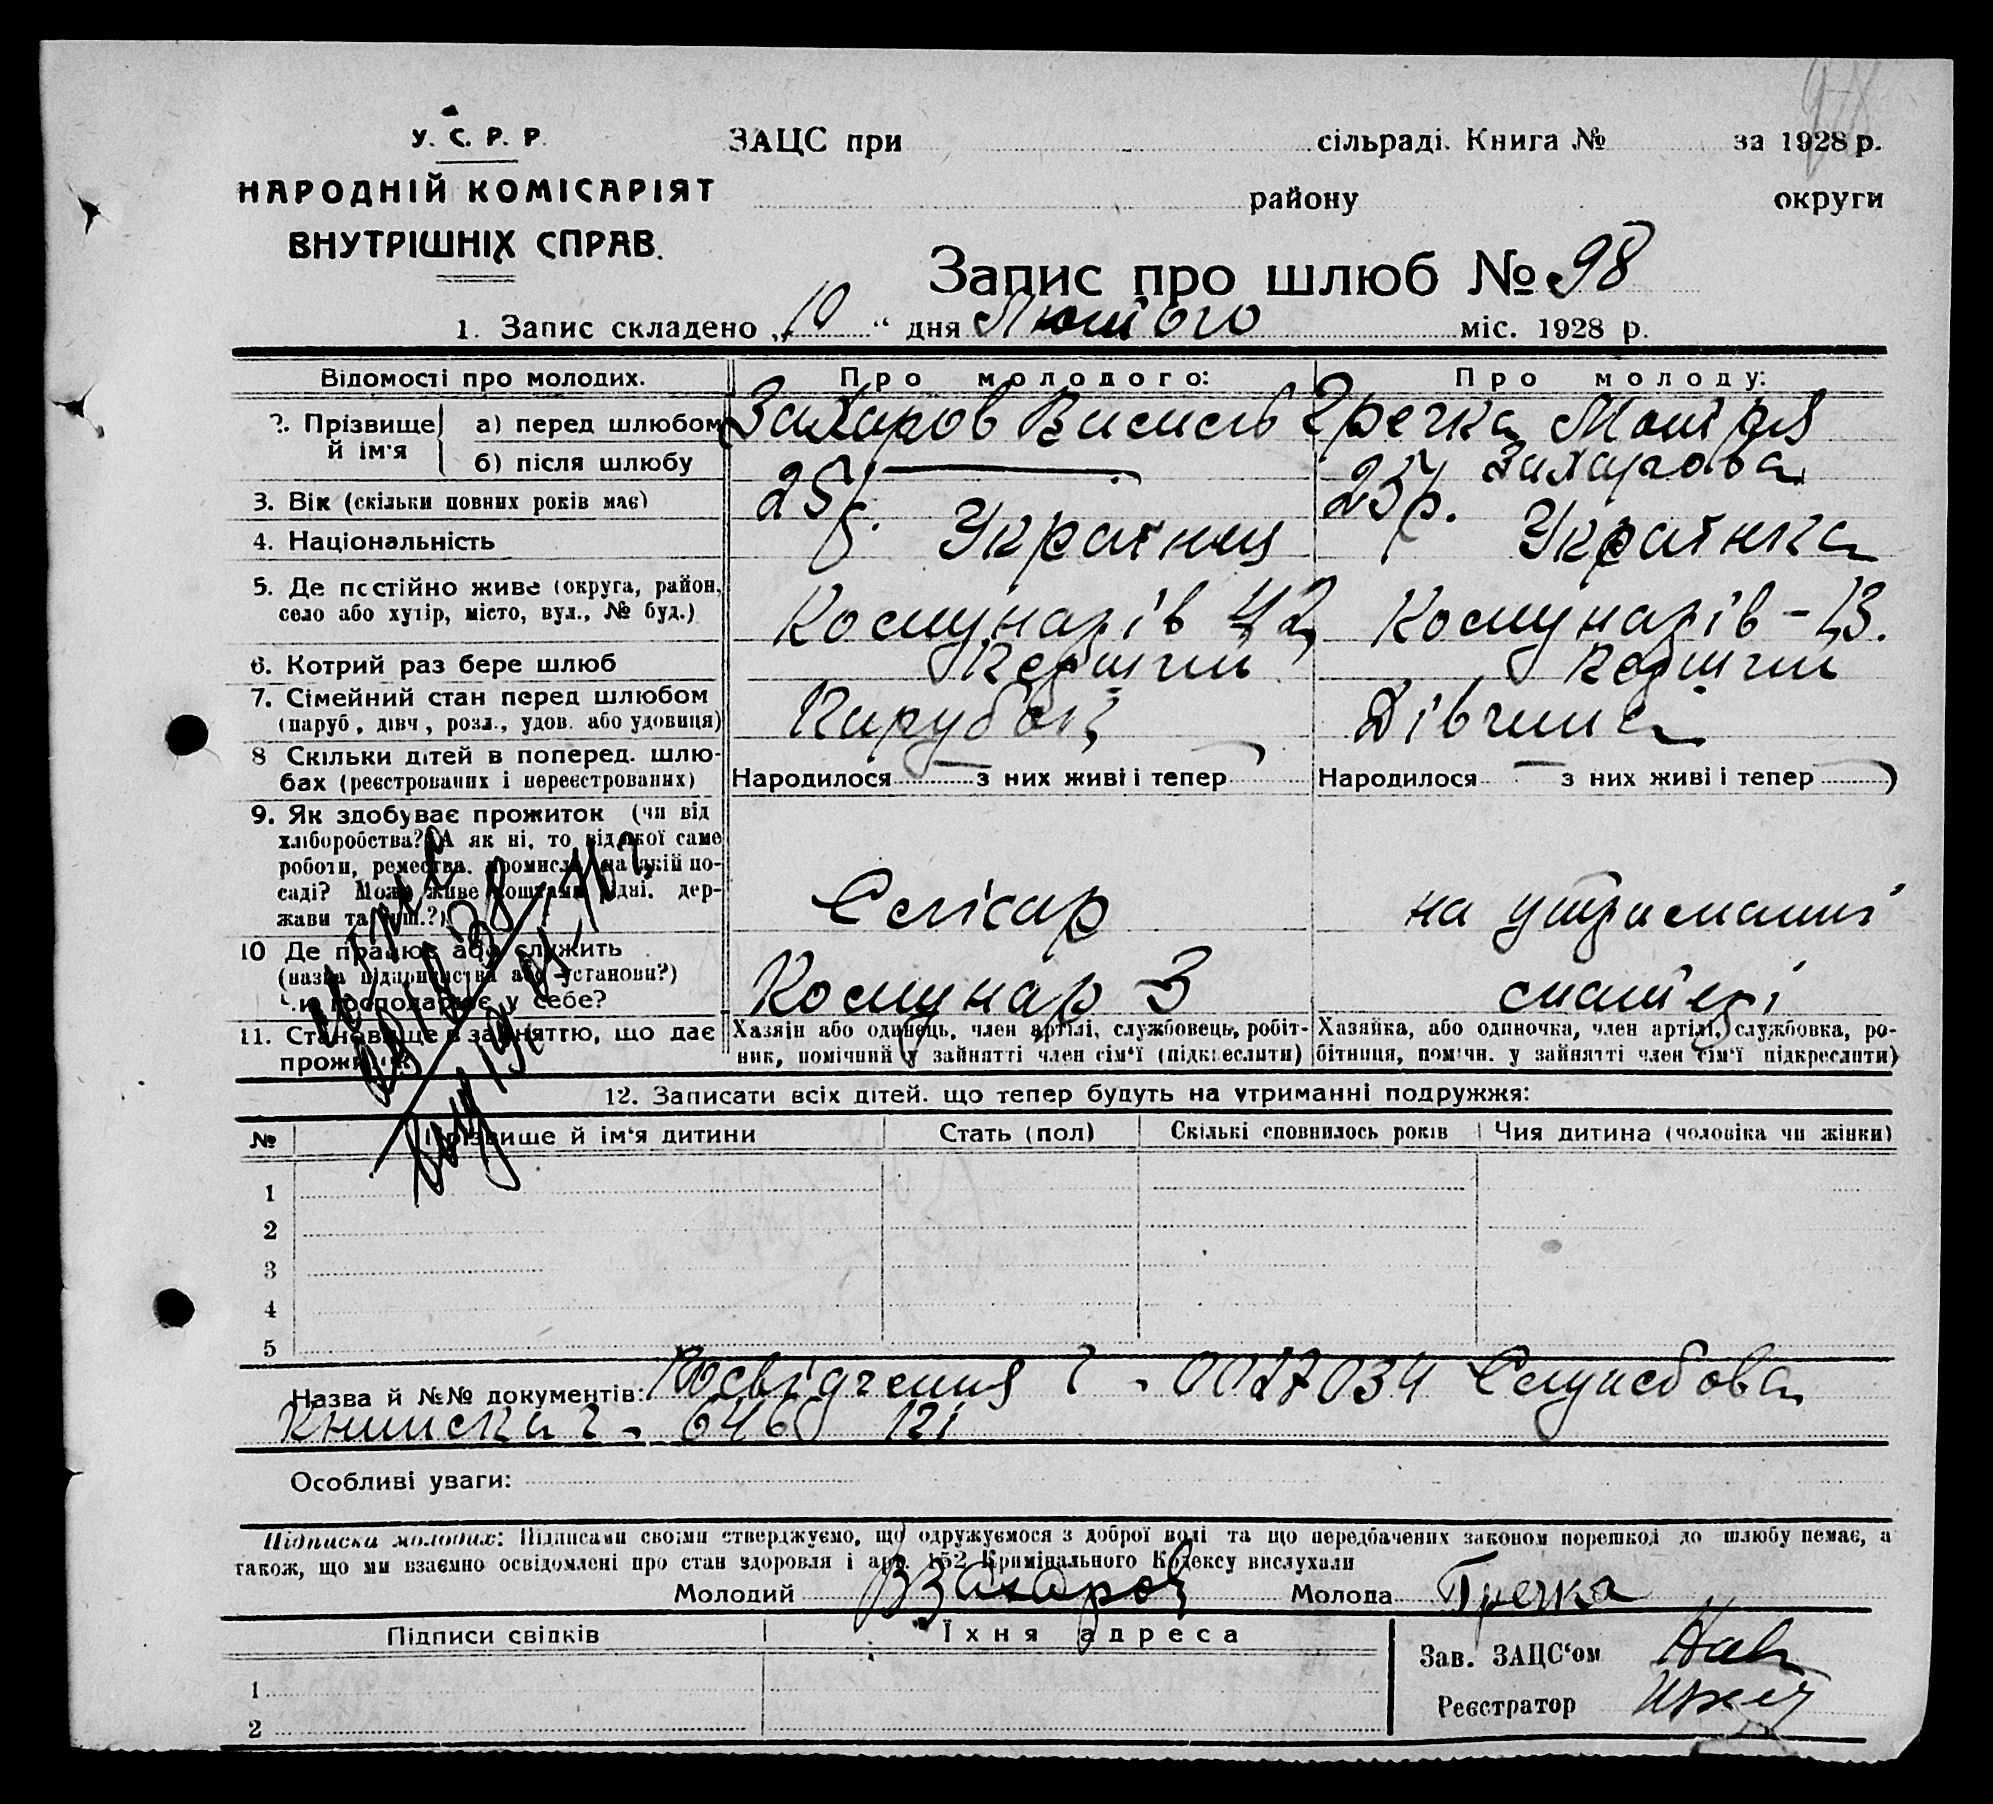 98
У. С. Р. Р.
НАРОДНІЙ КОМІСАРІЯТ
ВНУТРІШНІХ СПРАВ.
ЗАЦС при сільраді. Книга № за 1928 р.
району округи
Запис про шлюб № 98
1. Запис складено „10“ дня Лютого міс. 1928 р.
Відомості про молодих. Про молодого: Про молоду:
2. Прізвище й ім'я
а) перед шлюбом Захаров Василь Гречка Мотря
б) після шлюбу — Захарова
3. Вік (скільки повних років має) 25 р. 23 р.
4. Національність Українец Українка
5. Де постійно живе (округа, район, село або хутір, місто, вул., № буд.) Комунарів 42 Комунарів - 13.
6. Котрий раз бере шлюб Перший Перший
7. Сімейний стан перед шлюбом (паруб., дівч., розл., удов. або удовиця) Парубок Дівчина
8 Скільки дітей в поперед. шлюбах (реєстрованих і нереєстрованих) Народилося — з них живі і тепер — Народилося — з них живі і тепер —
9. Як здобуває прожиток (чи від
хліборобства? А як ні, то від якої саме
роботи, ремества, промисла, на якій по-
саді? Може живе коштами рідні, дер-
жави та инш.?) Слісар на утриманні
10 Де працює або служить
(назва підприємства або установи?)
Чи господарює у себе? Комунар 3 матері
11. Становище в зайняттю, що дає
прожиток
Хазяін або одинець, член артілі, службовець, робіт-
ник, помічний у зайнятті член сім'ї (підкреслити)
Хазяйка, або одиночка, член артілі, службовка, ро-
бітниця, помічн. у зайнятті член сім'ї підкреслити)
12. Записати всіх дітей, що тепер будуть на утриманні подружжя:
№ Прізвище й ім'я дитини Стать (пол) Скількі сповнилось років Чия дитина (чоловіка чи жінки)
1
2
3
4
5
Назва й №№ документів: Посвідчення ч. 0027034 Службова
книжка ч. - 646 121
Особливі уваги:
Підписка молодих: Підписами своїми стверджуємо, що одружуємося з доброї волі та що передбачених законом перешкод до шлюбу немає, а
також, що ми взаємно освідомлені про стан здоровля і арт. 152 Кримінального Кодексу вислухали
Молодий ВЗахаров Молода Гречка
Підписи свідків Їхня адреса
1
2
Зав. ЗАЦС'ом
Реєстратор